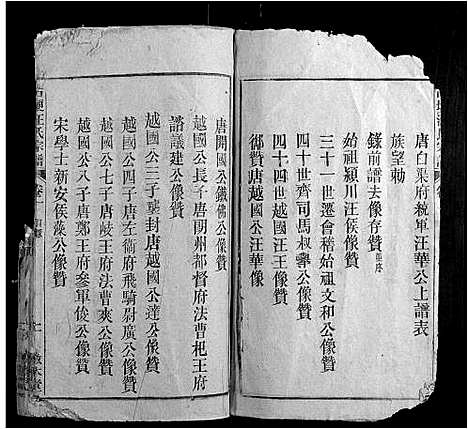 唐白渠府統軍汪華公上譜表
族望勅
錄前譜去像存贊並序
始祖潁川汪侯像贊
三十一世遷會稽始祖文和公像贊
四十世齊司馬叔舉公像贊
四十四世唐越國公汪華像
御贊唐越國公汪華像
唐開國公鐵佛公像贊
越國公長子唐朗州都督府法曹杞王府
諮議建公像贊
越國公二子襲封唐越國公達公像贊
越國公三子唐左衛府飛騎尉廣公像贊
越國公七子唐岐王府法曹爽公像贊
越國公八子唐鄭王府參軍俊公像贊
宋學士新安侯藻公像贊
汪氏宗譜
卷一